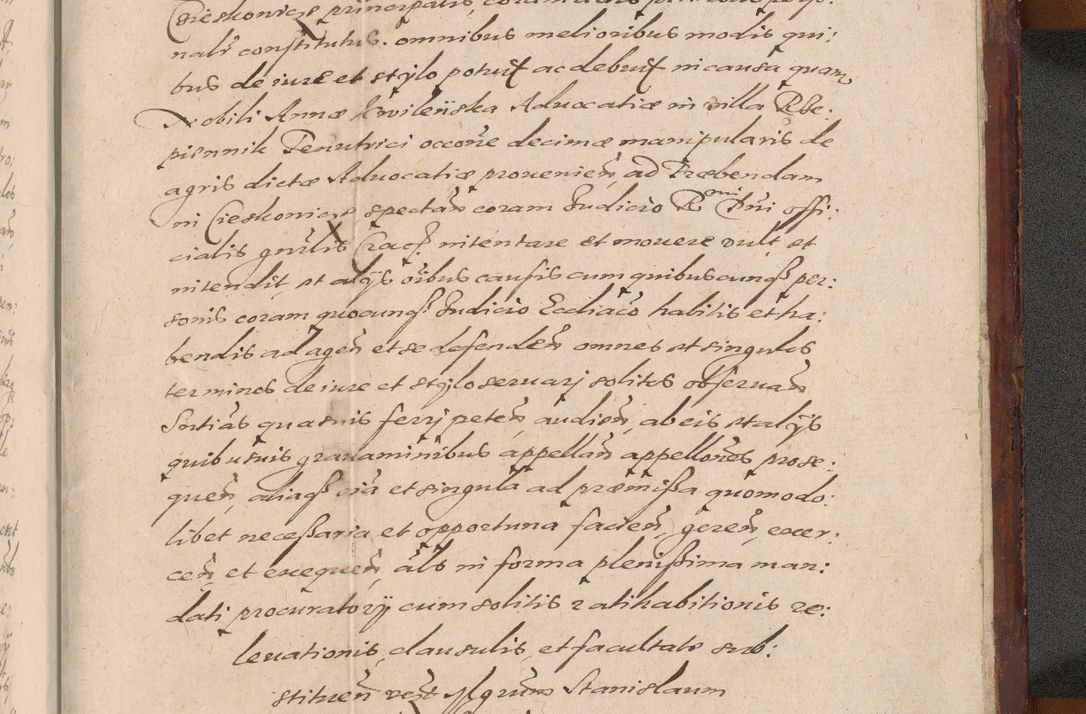 Cieskoniczs principalis, coram
nalr constitutus. omnibus melioribus modis qui:
bus de iure et stylo potuit ac debuit in causa quam
Nobili Annæ Kwileńska Aduocatiæ in villa Rze:
piennik Tenutrici occone decimæ manipularis de
agris dictæ Aduocatiæ prouenien, ad Præbendam
in Cieskonics spectan coram Judicio R mi Dni offi:
cialis gnrlis Crac. intentare et mouere vult, et
intendit, et alijs oibus causis cum quibuscunq per:
sonis coram quocunq Judicio Ecclico habitis et ha:
bendis ad agen et se defenden omnes et singulos
terminos de iure et stylo seruarj solitos obseruan
Sntias quasuis ferrj peten, audien, ab eis et alijs
quibusuis grauaminibus appellan appellones prose:
quen, aliaq oia et singula ad præmissa quomodo:
libet necessaria et opportuna facien, geren, exer:
cen et exequen, als in forma plenissima man:
dati procuratorij cum solitis ratihabitionis re:
leuationis, clausulis, et facultate sub:
stituen Stanislaum